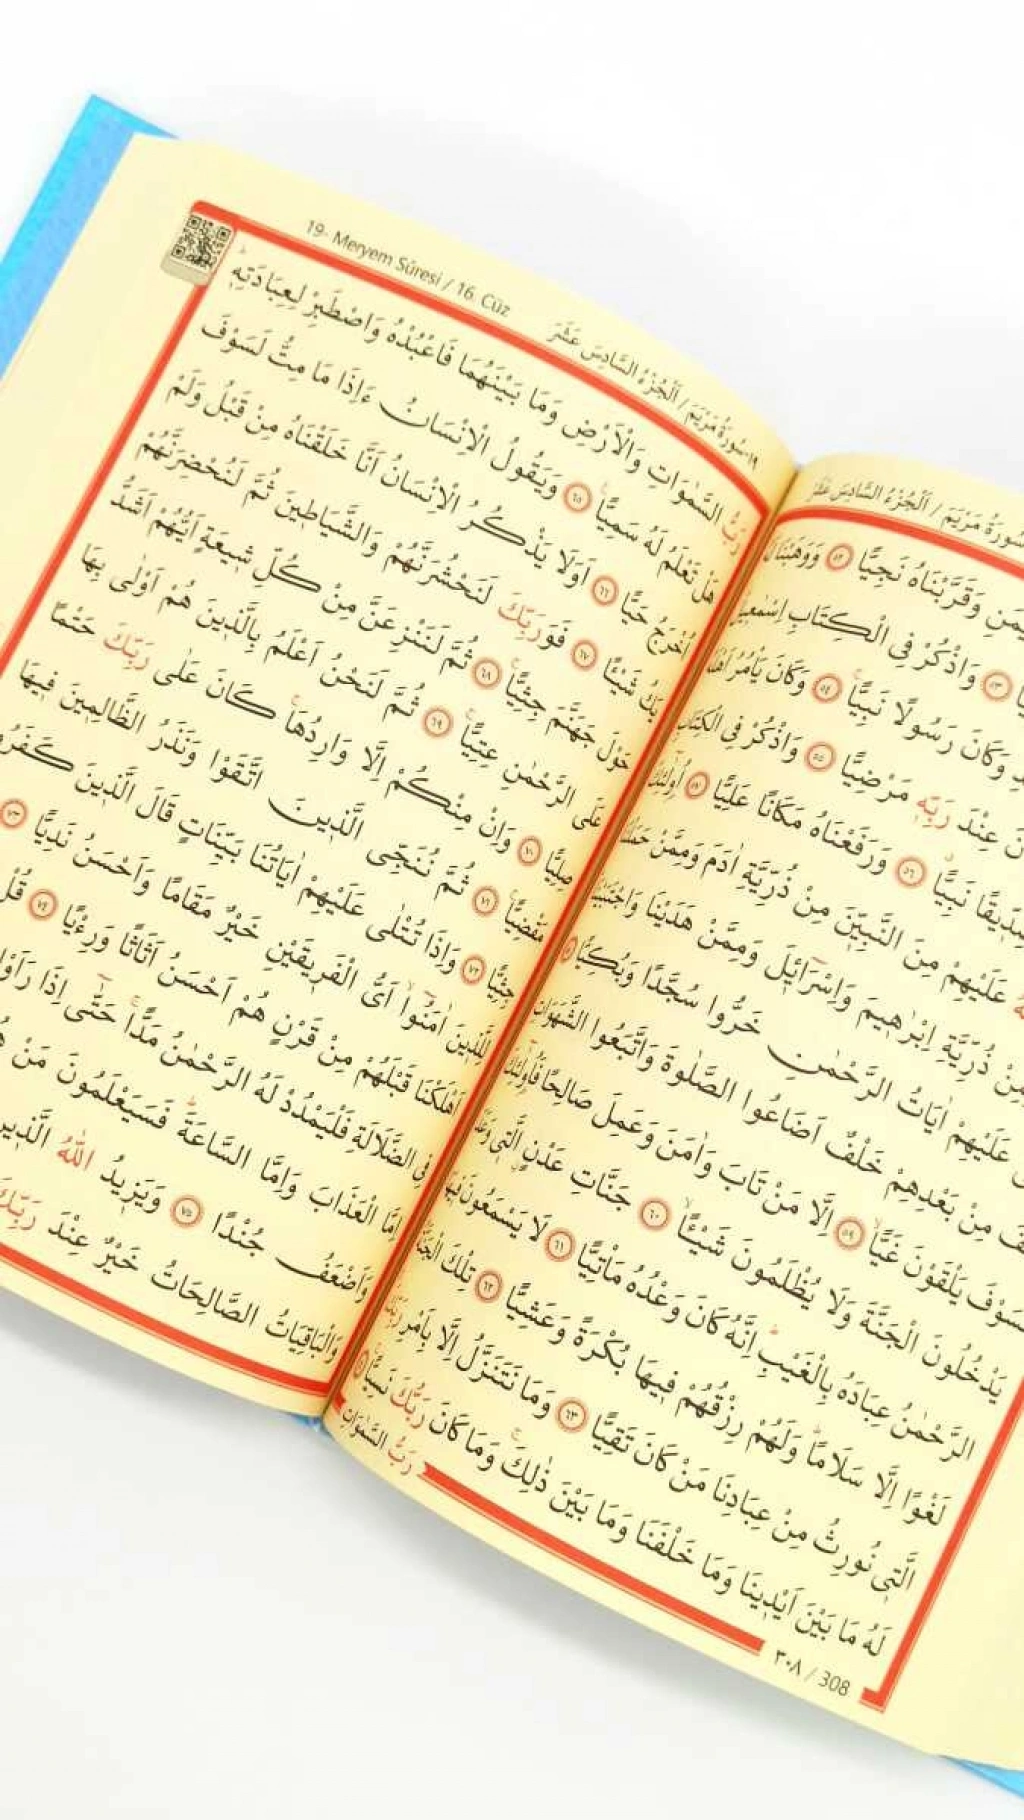 سُورَةُ مَرْيَمَ / اَلْجُزْءُ السَّادِسَ عَشَرَ
وَقَرَّبْنَاهُ نَجِيًّا ﴿٥٢﴾ وَوَهَبْنَا
﴿٥٣﴾ وَاذْكُرْ فِى الْكِتَابِ اِسْمٰعِيلَ
وَكَانَ رَسُولًا نَبِيًّا ﴿٥٤﴾ وَكَانَ يَأْمُرُ اَهْلَهُ
عِنْدَ رَبِّهٖ مَرْضِيًّا ﴿٥٥﴾ وَاذْكُرْ فِى الْكِتَابِ
صِدّٖيقًا نَبِيًّا ﴿٥٦﴾ وَرَفَعْنَاهُ مَكَانًا عَلِيًّا ﴿٥٧﴾ اُولٰٓئِكَ
عَلَيْهِمْ مِنَ النَّبِيّٖنَ مِنْ ذُرِّيَّةِ اٰدَمَ وَمِمَّنْ حَمَلْنَا
مِنْ ذُرِّيَّةِ اِبْرٰهٖيمَ وَاِسْرَٓائٖيلَ وَمِمَّنْ هَدَيْنَا وَاجْتَبَيْنَا
عَلَيْهِمْ اٰيَاتُ الرَّحْمٰنِ خَرُّوا سُجَّدًا وَبُكِيًّا
مِنْ بَعْدِهِمْ خَلْفٌ اَضَاعُوا الصَّلٰوةَ وَاتَّبَعُوا الشَّهَوَاتِ
فَسَوْفَ يَلْقَوْنَ غَيًّا ﴿٥٩﴾ اِلَّا مَنْ تَابَ وَاٰمَنَ وَعَمِلَ صَالِحًا فَاُولٰٓئِكَ
يَدْخُلُونَ الْجَنَّةَ وَلَا يُظْلَمُونَ شَيْـًٔا ﴿٦٠﴾ جَنَّاتِ عَدْنٍ الَّتٖى وَعَدَ
الرَّحْمٰنُ عِبَادَهُ بِالْغَيْبِ اِنَّهُ كَانَ وَعْدُهُ مَأْتِيًّا ﴿٦١﴾ لَا يَسْمَعُونَ فٖيهَا
لَغْوًا اِلَّا سَلَامًا وَلَهُمْ رِزْقُهُمْ فٖيهَا بُكْرَةً وَعَشِيًّا ﴿٦٢﴾ تِلْكَ الْجَنَّةُ
الَّتٖى نُورِثُ مِنْ عِبَادِنَا مَنْ كَانَ تَقِيًّا ﴿٦٣﴾ وَمَا نَتَنَزَّلُ اِلَّا بِاَمْرِ رَبِّكَ
لَهُ مَا بَيْنَ اَيْدٖينَا وَمَا خَلْفَنَا وَمَا بَيْنَ ذٰلِكَ وَمَا كَانَ رَبُّكَ نَسِيًّا ﴿٦٤﴾
رَبُّ السَّمٰوَاتِ
٣٠٨ / 308
19- Meryem Sûresi / 16. Cüz
١٩-سُورَةُ مَرْيَمَ / اَلْجُزْءُ السَّادِسَ عَشَرَ
رَبُّ السَّمٰوَاتِ وَالْاَرْضِ وَمَا بَيْنَهُمَا فَاعْبُدْهُ وَاصْطَبِرْ لِعِبَادَتِهٖ
هَلْ تَعْلَمُ لَهُ سَمِيًّا ﴿٦٥﴾ وَيَقُولُ الْاِنْسَانُ ءَاِذَا مَا مِتُّ لَسَوْفَ
اُخْرَجُ حَيًّا ﴿٦٦﴾ اَوَلَا يَذْكُرُ الْاِنْسَانُ اَنَّا خَلَقْنَاهُ مِنْ قَبْلُ وَلَمْ
يَكُ شَيْـًٔا ﴿٦٧﴾ فَوَرَبِّكَ لَنَحْشُرَنَّهُمْ وَالشَّيَاطٖينَ ثُمَّ لَنُحْضِرَنَّهُمْ
حَوْلَ جَهَنَّمَ جِثِيًّا ﴿٦٨﴾ ثُمَّ لَنَنْزِعَنَّ مِنْ كُلِّ شٖيعَةٍ اَيُّهُمْ اَشَدُّ
عَلَى الرَّحْمٰنِ عِتِيًّا ﴿٦٩﴾ ثُمَّ لَنَحْنُ اَعْلَمُ بِالَّذٖينَ هُمْ اَوْلٰى بِهَا
صِلِيًّا ﴿٧٠﴾ وَاِنْ مِنْكُمْ اِلَّا وَارِدُهَا كَانَ عَلٰى رَبِّكَ حَتْمًا
مَقْضِيًّا ﴿٧١﴾ ثُمَّ نُنَجِّى الَّذٖينَ اتَّقَوْا وَنَذَرُ الظَّالِمٖينَ فٖيهَا
جِثِيًّا ﴿٧٢﴾ وَاِذَا تُتْلٰى عَلَيْهِمْ اٰيَاتُنَا بَيِّنَاتٍ قَالَ الَّذٖينَ كَفَرُوا
لِلَّذٖينَ اٰمَنُوا اَىُّ الْفَرٖيقَيْنِ خَيْرٌ مَقَامًا وَاَحْسَنُ نَدِيًّا ﴿٧٣﴾
اَهْلَكْنَا قَبْلَهُمْ مِنْ قَرْنٍ هُمْ اَحْسَنُ اَثَاثًا وَرِءْيًا ﴿٧٤﴾ قُلْ
فِى الضَّلَالَةِ فَلْيَمْدُدْ لَهُ الرَّحْمٰنُ مَدًّا حَتّٰٓى اِذَا رَاَوْا
اِمَّا الْعَذَابَ وَاِمَّا السَّاعَةَ فَسَيَعْلَمُونَ مَنْ
وَاَضْعَفُ جُنْدًا ﴿٧٥﴾ وَيَزٖيدُ اللّٰهُ الَّذٖينَ
وَالْبَاقِيَاتُ الصَّالِحَاتُ خَيْرٌ عِنْدَ رَبِّكَ